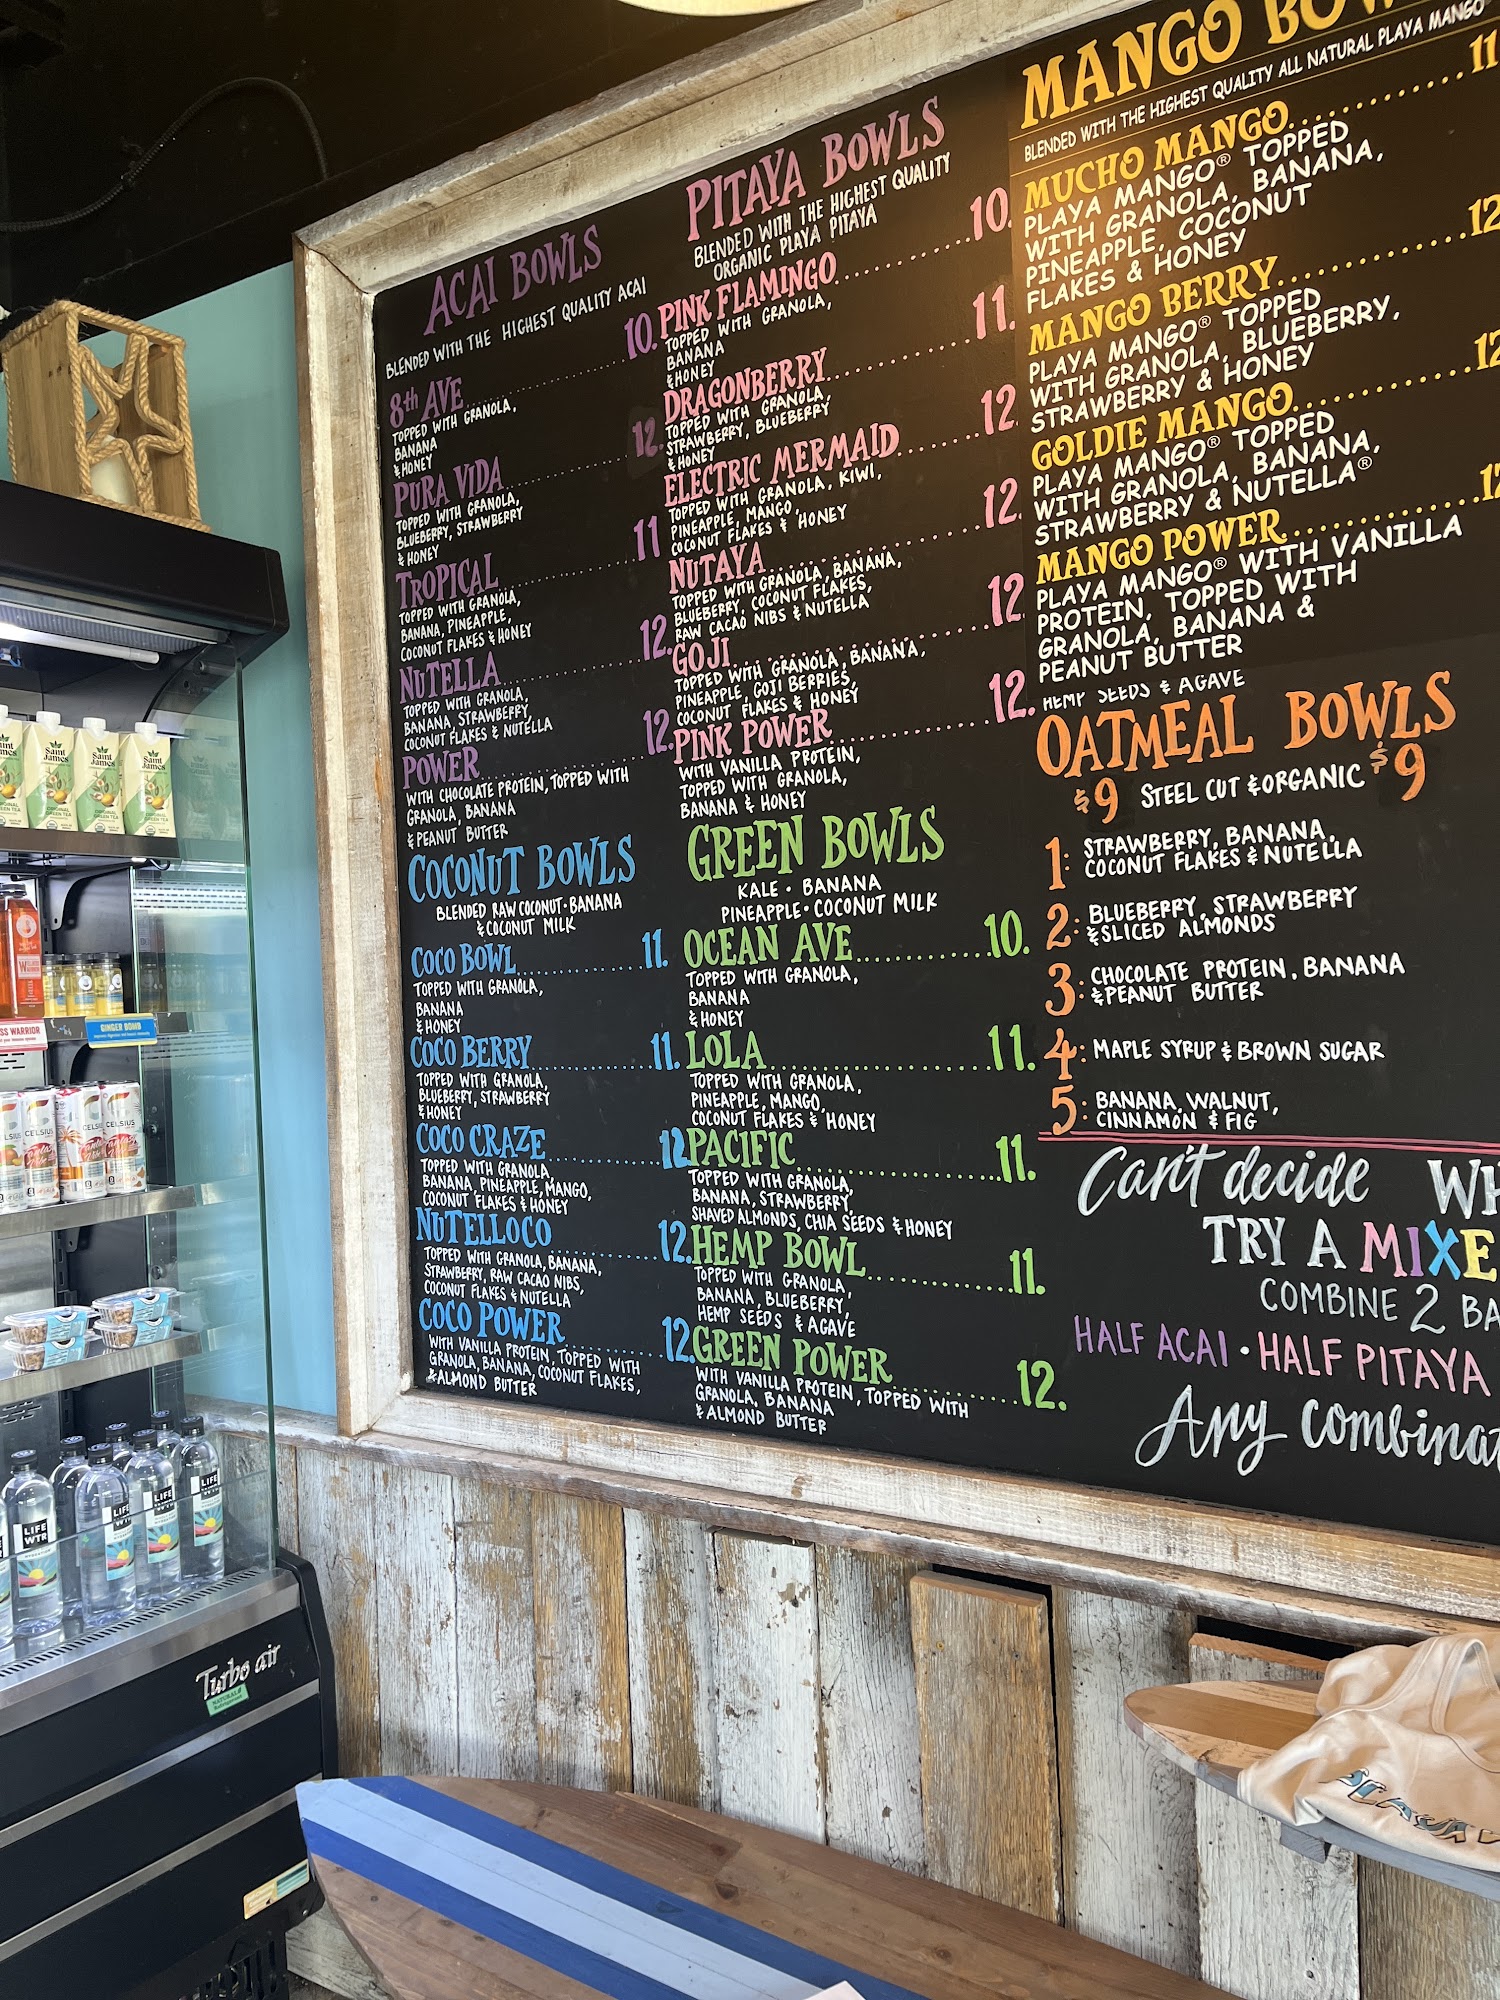 ACAI BOWLS
BLENDED WITH THE HIGHEST QUALITY ACAI
8th AVE 10.
TOPPED WITH GRANOLA,
BANANA
& HONEY
PURA VIDA 12.
TOPPED WITH GRANOLA,
BLUEBERRY, STRAWBERRY
& HONEY
TROPICAL 11
TOPPED WITH GRANOLA,
BANANA, PINEAPPLE,
COCONUT FLAKES & HONEY
NUTELLA 12.
TOPPED WITH GRANOLA,
BANANA, STRAWBERRY,
COCONUT FLAKES & NUTELLA
POWER 12.
WITH CHOCOLATE PROTEIN, TOPPED WITH
GRANOLA, BANANA
& PEANUT BUTTER
COCONUT BOWLS
BLENDED RAW COCONUT · BANANA
& COCONUT MILK
COCO BOWL 11.
TOPPED WITH GRANOLA,
BANANA
& HONEY
COCO BERRY 11.
TOPPED WITH GRANOLA,
BLUEBERRY, STRAWBERRY
& HONEY
COCO CRAZE 12.
TOPPED WITH GRANOLA,
BANANA, PINEAPPLE, MANGO,
COCONUT FLAKES & HONEY
NUTELLOCO 12.
TOPPED WITH GRANOLA, BANANA,
STRAWBERRY, RAW CACAO NIBS,
COCONUT FLAKES & NUTELLA
COCO POWER 12.
WITH VANILLA PROTEIN, TOPPED WITH
GRANOLA, BANANA, COCONUT FLAKES,
& ALMOND BUTTER
PITAYA BOWLS
BLENDED WITH THE HIGHEST QUALITY
ORGANIC PLAYA PITAYA
PINK FLAMINGO 10.
TOPPED WITH GRANOLA,
BANANA
& HONEY
DRAGONBERRY 11.
TOPPED WITH GRANOLA,
STRAWBERRY, BLUEBERRY
& HONEY
ELECTRIC MERMAID 12
TOPPED WITH GRANOLA, KIWI,
PINEAPPLE, MANGO,
COCONUT FLAKES & HONEY
NUTAYA 12.
TOPPED WITH GRANOLA, BANANA,
BLUEBERRY, COCONUT FLAKES,
RAW CACAO NIBS & NUTELLA
GOJI 12
TOPPED WITH GRANOLA, BANANA,
PINEAPPLE, GOJI BERRIES,
COCONUT FLAKES & HONEY
PINK POWER 12.
WITH VANILLA PROTEIN,
TOPPED WITH GRANOLA,
BANANA & HONEY
GREEN BOWLS
KALE · BANANA
PINEAPPLE · COCONUT MILK
OCEAN AVE 10.
TOPPED WITH GRANOLA,
BANANA
& HONEY
LOLA 11.
TOPPED WITH GRANOLA,
PINEAPPLE, MANGO,
COCONUT FLAKES & HONEY
PACIFIC 11.
TOPPED WITH GRANOLA,
BANANA, STRAWBERRY,
SHAVED ALMONDS, CHIA SEEDS & HONEY
HEMP BOWL 11.
TOPPED WITH GRANOLA,
BANANA, BLUEBERRY,
HEMP SEEDS & AGAVE
GREEN POWER 12.
WITH VANILLA PROTEIN, TOPPED WITH
GRANOLA, BANANA
& ALMOND BUTTER
MANGO BOW
BLENDED WITH THE HIGHEST QUALITY ALL NATURAL PLAYA MANGO
MUCHO MANGO 11
PLAYA MANGO® TOPPED
WITH GRANOLA, BANANA,
PINEAPPLE, COCONUT
FLAKES & HONEY
MANGO BERRY 12
PLAYA MANGO® TOPPED
WITH GRANOLA, BLUEBERRY,
STRAWBERRY & HONEY
GOLDIE MANGO 12
PLAYA MANGO® TOPPED
WITH GRANOLA, BANANA,
STRAWBERRY & NUTELLA®
MANGO POWER 12
PLAYA MANGO® WITH VANILLA
PROTEIN, TOPPED WITH
GRANOLA, BANANA &
PEANUT BUTTER
HEMP SEEDS & AGAVE
OATMEAL BOWLS
$9 STEEL CUT & ORGANIC $9
1: STRAWBERRY, BANANA,
COCONUT FLAKES & NUTELLA
2: BLUEBERRY, STRAWBERRY
& SLICED ALMONDS
3: CHOCOLATE PROTEIN, BANANA
& PEANUT BUTTER
4: MAPLE SYRUP & BROWN SUGAR
5: BANANA, WALNUT,
CINNAMON & FIG
Can't decide WH
TRY A MIXE
COMBINE 2 BA
HALF ACAI · HALF PITAYA
Any combinat
Saint James
Saint James
Saint James
ORIGINAL GREEN TEA
SS WARRIOR
GINGER BOMB
CELSIUS
CELSIUS
CELSIUS
LIFE WTR
LIFE WTR
LIFE WTR
LIFE WTR
Turbo air
NATURAL